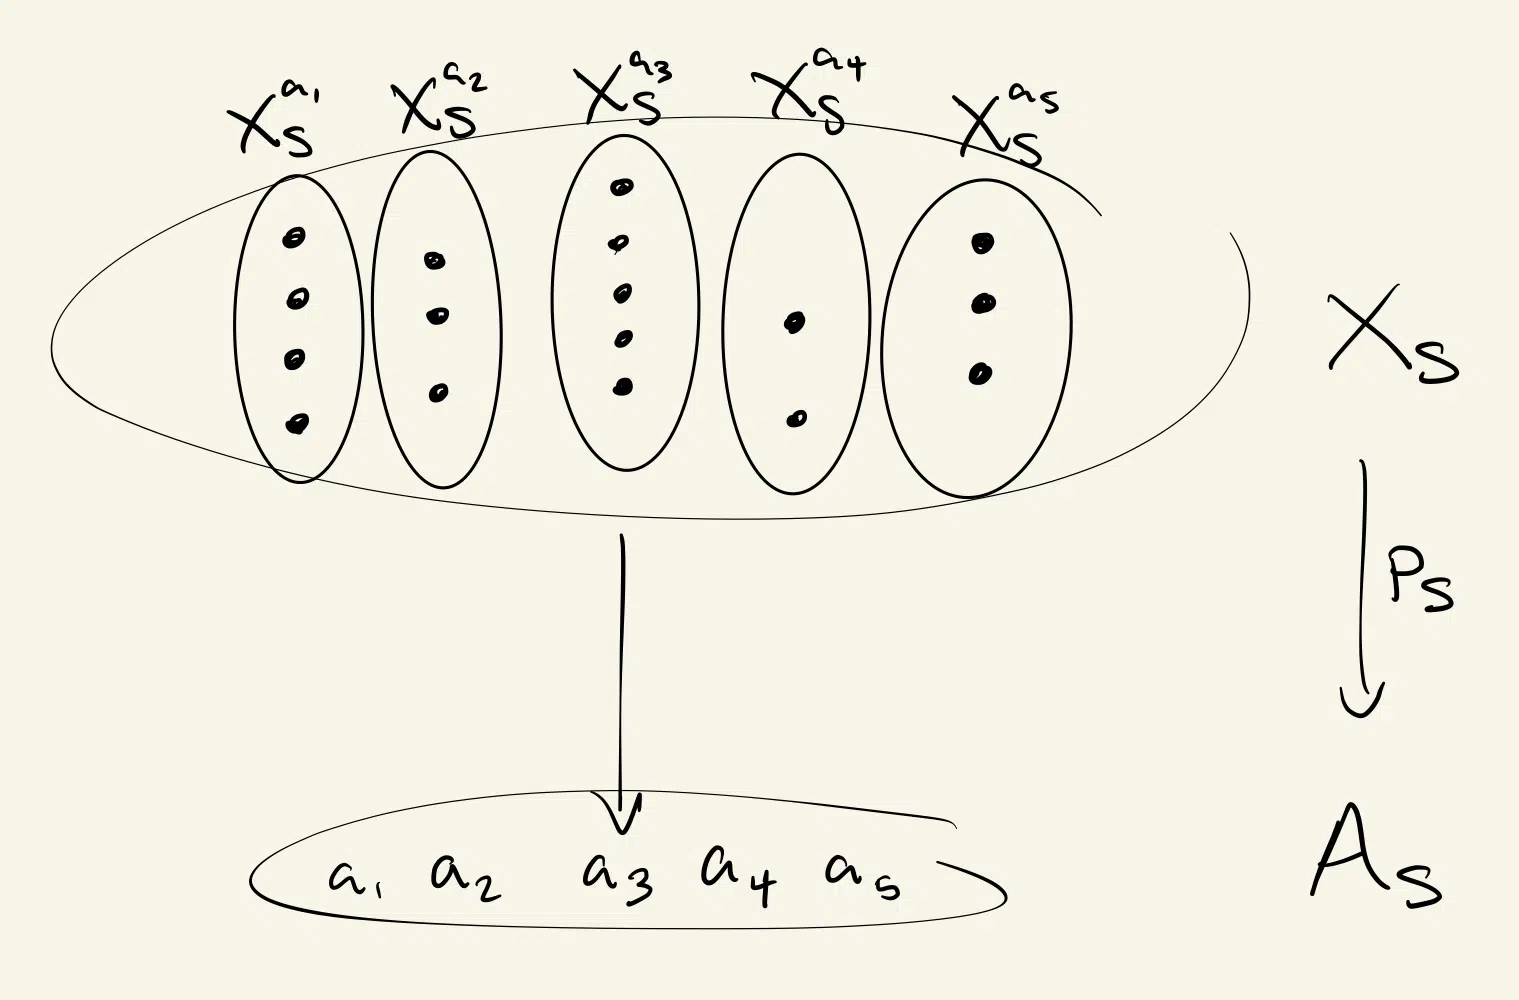 X_S^{a_1} X_S^{a_2} X_S^{a_3} X_S^{a_4} X_S^{a_5}
X_S
P_S
a_1 a_2 a_3 a_4 a_5
A_S